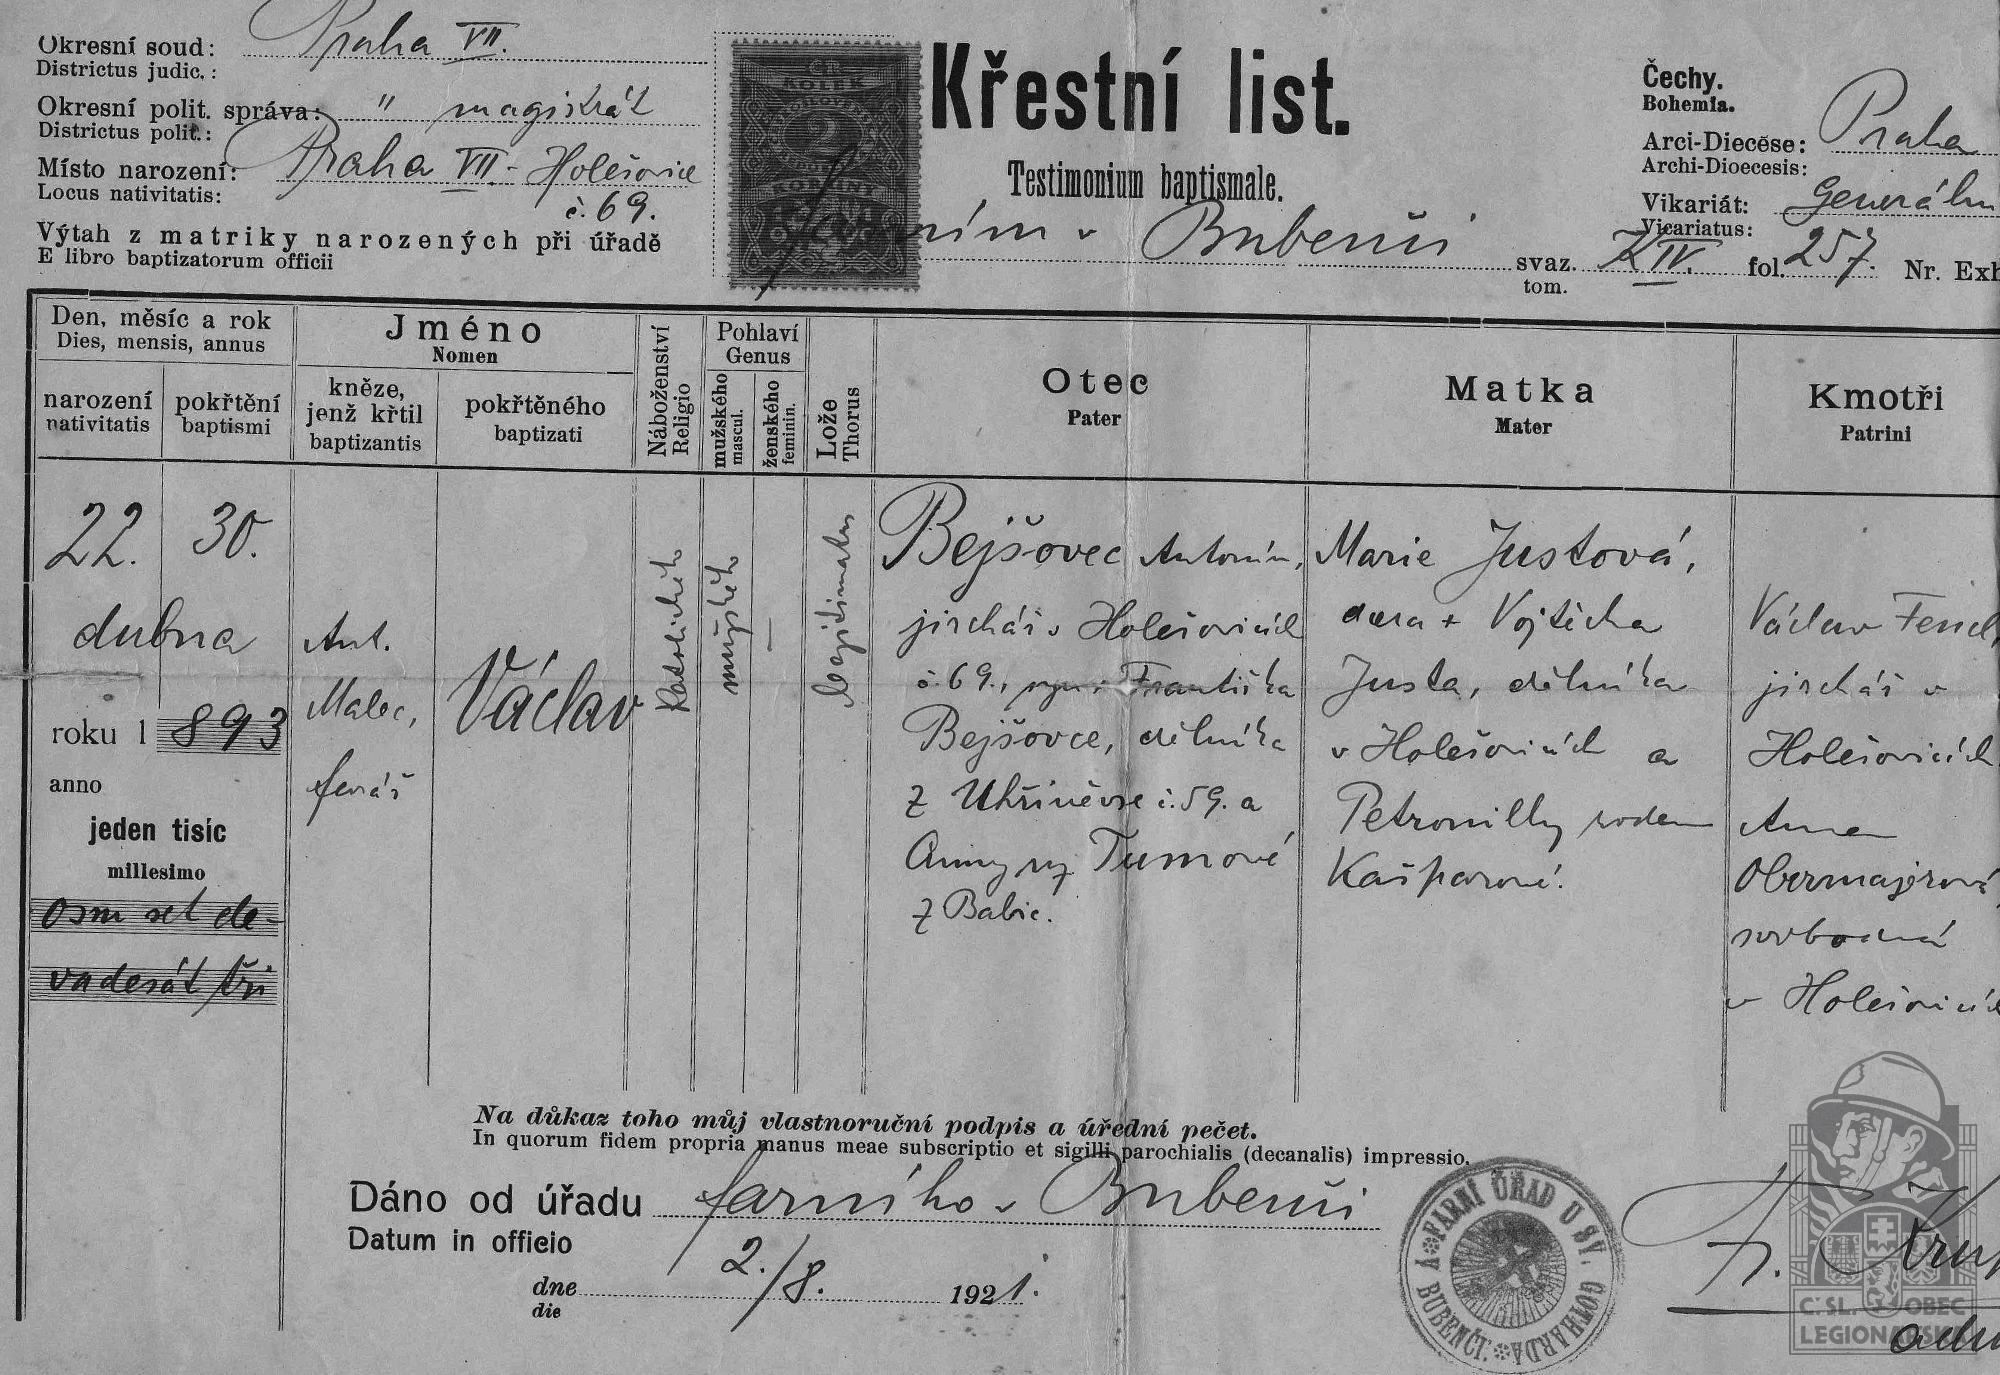 Okresní soud: Praha VII.
Districtus judic.:
Okresní polit. správa: " magistrát
Districtus polit.:
Místo narození: Praha VII - Holešovice
Locus nativitatis:
č. 69.
Výtah z matriky narozených při úřadě farním v Bubenči svaz. XIV. fol. 257. Nr. Exh
E libro baptizatorum officii tom.
KOLEK
2
KORUNY
Křestní list.
Testimonium baptismale.
Čechy.
Bohemia.
Arci-Diecése: Praha
Archi-Dioecesis:
Vikariát: Generální
Vicariatus:
Den, měsíc a rok
Dies, mensis, annus
narození
nativitatis
pokřtění
baptismi
Jméno
Nomen
kněze,
jenž křtil
baptizantis
pokřtěného
baptizati
Náboženství
Religio
Pohlaví
Genus
mužského
mascul.
ženského
feminin.
Lože
Thorus
Otec
Pater
Matka
Mater
Kmotři
Patrini
22. 30.
dubna
roku 1893
anno
jeden tisíc
millesimo
osm set de-
vadesát tři
Ant.
Malec,
farář
Václav
Katolického
mužského
—
legitimatus
Bejšovec Antonín,
jirchář v Holešovicích
č. 69., syn Františka
Bejšovce, dělníka
z Uhříněvse č. 59. a
Anny roz Tumové
z Babic.
Marie Justová,
dcera + Vojtěcha
Justa, dělníka
v Holešovicích a
Petronilly rodem
Kašparové.
Václav Fencl,
jirchář v
Holešovicích
Anna
Obermajerová,
svobodná
v Holešovicích
Na důkaz toho můj vlastnoruční podpis a úřední pečet.
In quorum fidem propria manus meae subscriptio et sigilli parochialis (decanalis) impressio.
Dáno od úřadu farního v Bubenči
Datum in officio
dne 2./8. 1921.
die
FARNÍ ÚŘAD U SV. GOTHARDA V BUBENČI.
Č SL. OBEC
LEGIONÁŘSKÁ